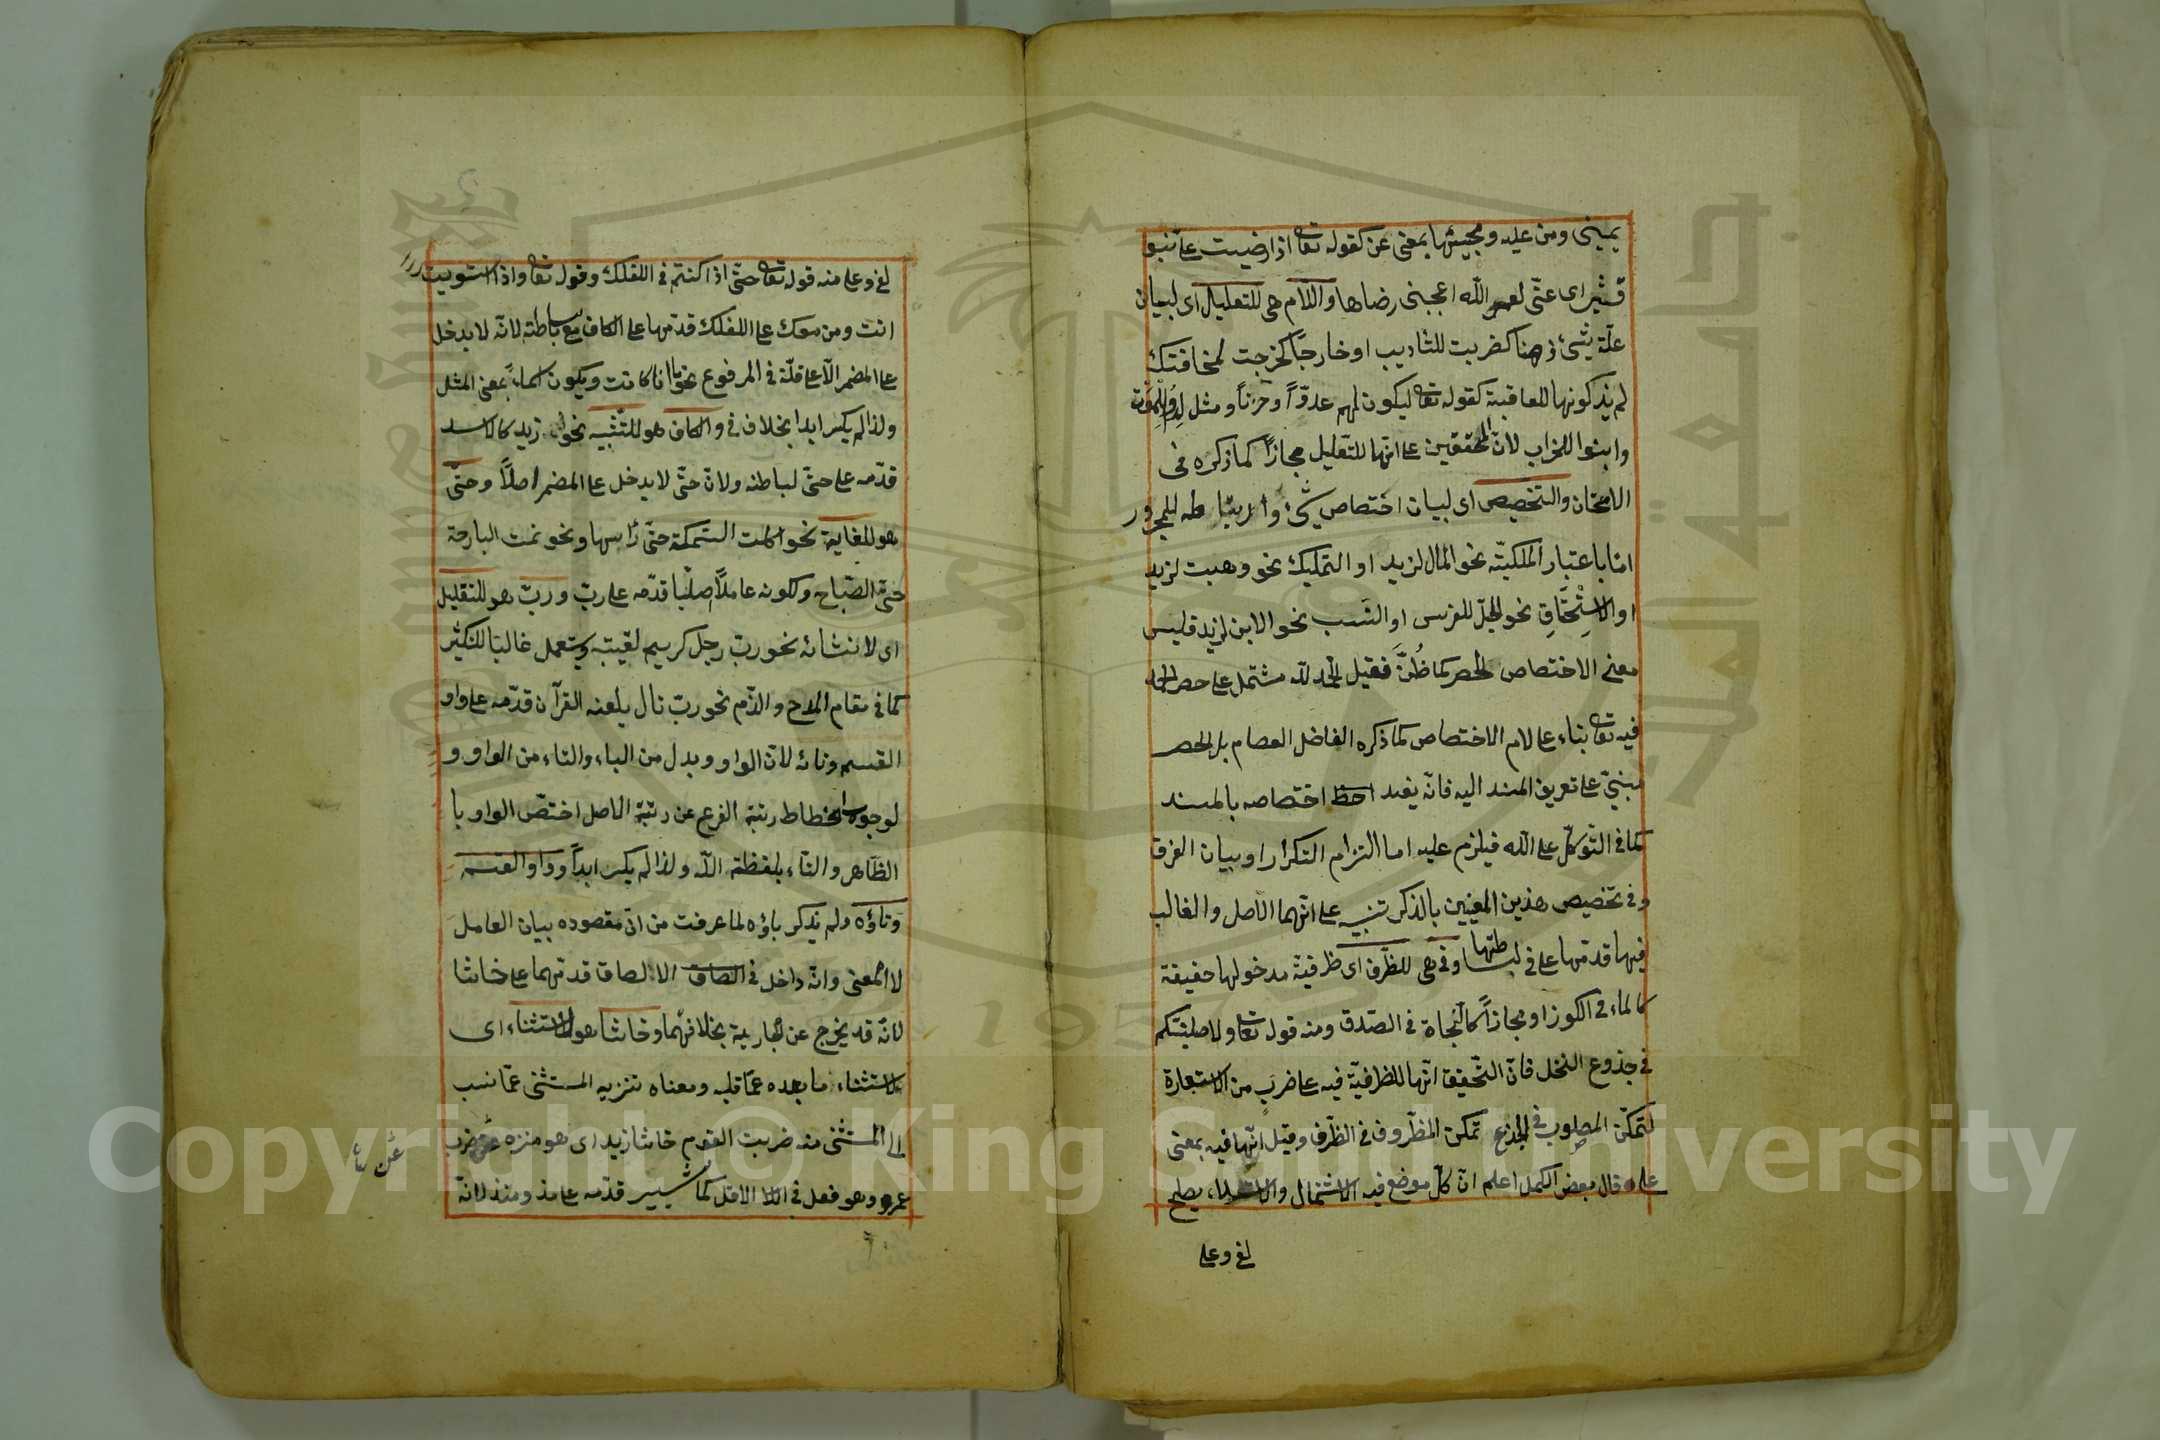 يميني ومن عليه ومجيئها بمعنى عن كقوله تعا اذا رضيت على بنو
قشير اى عنّى لعمر اللّه اعجبنى رضاها واللام هى للتعليل اى لبيان
علّة شئ ذهنا كضربت للتأديب او خارجًا كخرجت لمخافتك
لم يذكر كونها للعاقبة كقوله تعا ليكون لهم عدوّاً وحزناً ومثل لدوا للموت
وابنوا للخراب لانّ المحققين على انها للتعليل مجازاً كما ذكره فى
الامتحان والتخصيص اى لبيان اختصاص شئ وارتباطه للمجرور
امّا باعتبار الملكيّة نحو المال لزيد او التمليك نحو وهبت لزيد
او الاستحقاق نحو الجلّ للفرس او النسب نحو الابن لزيد فليس
معنى الاختصاص الحصر كما ظُنَّ فقيل الحمد للّه مشتمل على حصر الحمد
فيه تعا بناء على لام الاختصاص كما ذكره الفاضل العصام بل الحصر
مبنىّ على تعريف المسند اليه فانّه يفيد اختصاصه بالمسند
كما فى التّوكّل على اللّه فيلزم عليه اما التزام التكرار او بيان الفرق
وفى تخصيص هذين المعنيين بالذكر تنبيه على انّهما الاصل والغالب
فيها قدمها على فى لبساطتها وفى هى للظرف اى ظرفيّة مدخولها حقيقة
كالماء فى الكوز او مجازاً كالنّجاة فى الصّدق ومنه قوله تعا ولاصلبنّكم
فى جذوع النخل فانّ التّحقيق انّها للظرفيّة فيه على ضرب من الاستعارة
لتمكّن المصلوب فى الجذع تمكن المظروف فى الظّرف وقيل انّها فيه بمعنى
على وقال بعض الكمل اعلم انّ كلّ موضع فيه الاشتمال والاستعلاء يصلح
لفى وعلى
لفى وعلى منه قوله تعا حتّى اذا كنتم فى الفلك وقوله تعا واذا استويت
انت ومن معك على الفلك قدّمها على الكاف مع بساطته لانّه لا يدخل
على المضمر الّا على قلّة فى المرفوع نحو ما انا كانت ويكون اسماً بمعنى المثل
ولذا لم يكسر ابدا بخلاف فى والكاف هو للتّشبيه نحو زيد كالاسد
قدّمه على حتّى لبساطته ولانّ حتّى لا يدخل على المضمر اصلًا وحتّى
هو للغاية نحو اكلت السّمكة حتّى رأسها ونحو نمت البارحة
حتّى الصّباح ولكونه عاملًا اصليّا قدّمه على ربّ وربّ هو للتقليل
اى لانشائه نحو ربّ رجل كريم لقيته ويستعمل غالبًا للتكثير
كما فى مقام المدح والذّم نحو ربّ تال يلعنه القرآن قدّمه على واو
القسم وتائه لانّ الواو وبدل من الباء والتاء من الواو و
لوجوب انحطاط رتبة الفرع عن رتبة الاصل اختصّ الواو با
الظّاهر والتّاء بلفظة اللّه ولذا لم يكسر ابداً وواو القسم
وتاؤه ولم يذكر باؤه لما عرفت من انّ مقصوده بيان العامل
لا المعنى وانّه داخل فى الصاق الالصاق قدمهما على حاشا
لانّه قد يخرج عن الجارية بخلافهما وحاشا هو للاستثناء اى
لاستثناء ما بعده عمّا قبله ومعناه تنزيه المستثنى عمّا نسب
الى المستثنى منه ضربت القوم حاشا زيد اى هو منزه عن ضرب
عمرو وهو فعل فى الاقل كما سيشير قدّمه على مذ ومنذ لانّه